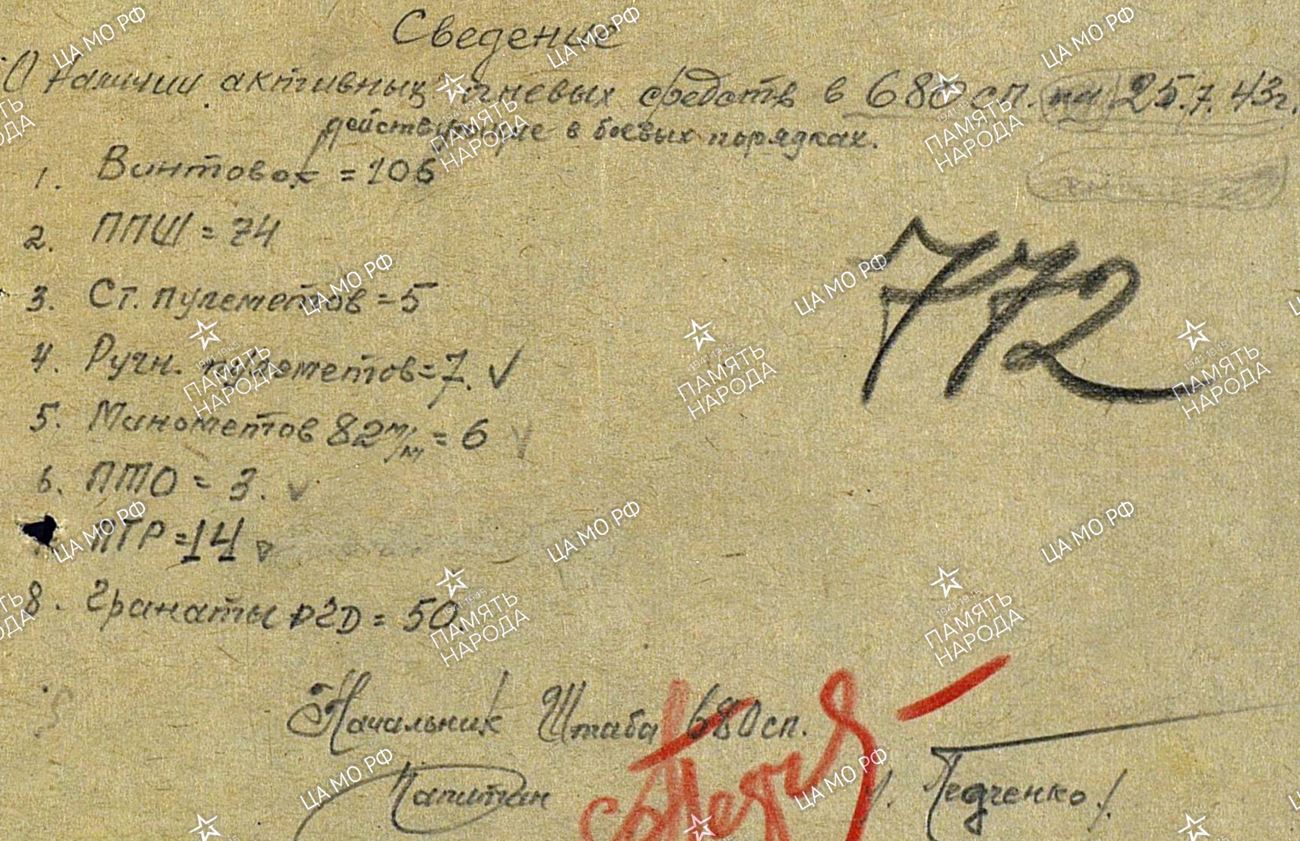 Сведение
О наличии активных огневых средств в 680 сп. на 25.7.43г.
действующие в боевых порядках.
1. Винтовок = 106
2. ППШ = 74
772
3. Ст. пулеметов = 5
4. Ручн. пулеметов = 7. ✓
5. Минометов 82 м/м = 6 ✓
6. ПТО = 3. ✓
ПТР = 14
8. Гранаты РГД = 50
Начальник Штаба 680 сп.
Капитан Педченко/
ЦА МО РФ
ПАМЯТЬ НАРОДА